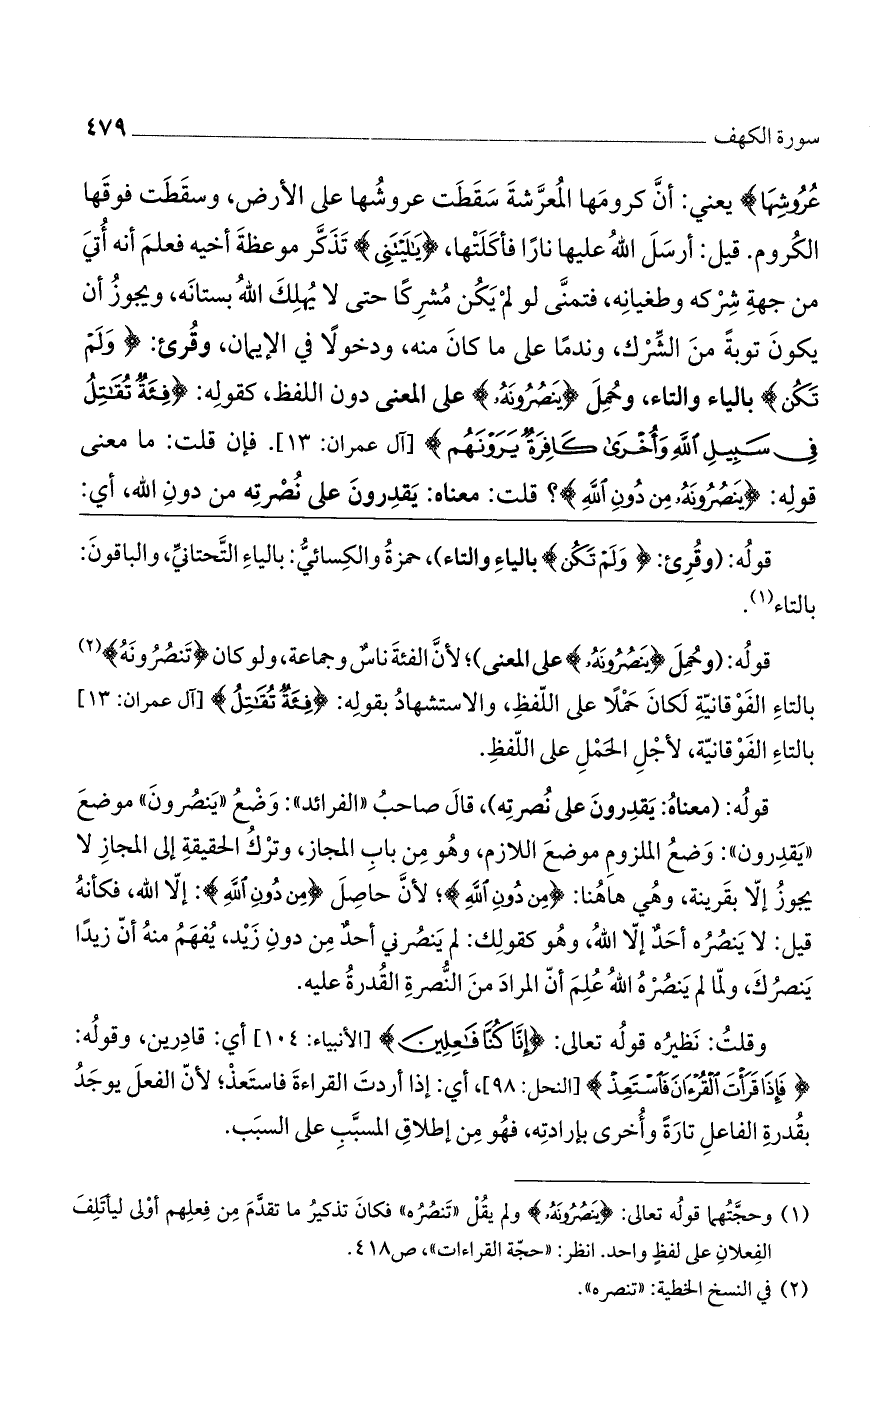 سورة الكهف ٤٧٩
عُرُوشِهَا﴾ يعني: أنَّ كرومَها المُعرَّشةَ سَقَطَت عروشُها على الأرض، وسقطَت فوقَها
الكُروم. قيل: أرسَلَ اللهُ عليها نارًا فأكلَتْها، ﴿يَٰلَيْتَنِى﴾ تَذَكَّر موعظةَ أخيه فعلمَ أنه أُتِيَ
من جهةِ شِرْكه وطغيانِه، فتمنَّى لو لمْ يَكُن مُشرِكًا حتى لا يُهلِكَ اللهُ بستانَه، ويجوزُ أن
يكونَ توبةً منَ الشِّرْك، وندمًا على ما كانَ منه، ودخولًا في الإيمان، وقُرئ: ﴿وَلَمْ
تَكُن﴾ بالياء والتاء، وحُمِلَ ﴿يَنصُرُونَهُۥ﴾ على المعنى دون اللفظ، كقولِه: ﴿فِئَةٌ تُقَٰتِلُ
فِى سَبِيلِ ٱللَّهِ وَأُخْرَىٰ كَافِرَةٌ يَرَوْنَهُم﴾ [آل عمران: ١٣]. فإن قلت: ما معنى
قولِه: ﴿يَنصُرُونَهُۥ مِن دُونِ ٱللَّهِ﴾؟ قلت: معناه: يَقدِرونَ على نُصْرتِه من دونِ الله، أي:
قولُه: (وقُرِئ: ﴿وَلَمْ تَكُن﴾ بالياءِ والتاء)، حمزةُ والكِسائيُّ: بالياءِ التَّحتانيِّ، والباقونَ:
بالتاء(١).
قولُه: (وحُمِلَ ﴿يَنصُرُونَهُۥ﴾ على المعنى)؛ لأنَّ الفئةَ ناسٌ وجماعة، ولو كان ﴿تَنصُرُونَهُ﴾(٢)
بالتاءِ الفَوْقانيّةِ لَكانَ حَمْلًا على اللّفظِ، والاستشهادُ بقولِه: ﴿فِئَةٌ تُقَٰتِلُ﴾ [آل عمران: ١٣]
بالتاءِ الفَوْقانيّة، لأجْلِ الحَمْلِ على اللّفظِ.
قولُه: (معناهُ: يَقدِرونَ على نُصرتِه)، قالَ صاحبُ «الفرائد»: وَضْعُ «يَنصُرونَ» موضعَ
«يَقدِرون»: وَضعُ الملزومِ موضعَ اللازم، وهُو مِن بابِ المجاز، وترْكُ الحقيقةِ إلى المجازِ لا
يجوزُ إلّا بقَرينة، وهُي هاهُنا: ﴿مِن دُونِ ٱللَّهِ﴾؛ لأنَّ حاصِلَ ﴿مِن دُونِ ٱللَّهِ﴾: إلّا الله، فكأنهُ
قيل: لا يَنصُرُه أحَدٌ إلّا اللهُ، وهُو كقولِك: لم يَنصُرني أحدٌ مِن دونِ زَيْد، يُفهَمُ منهُ أنّ زيدًا
يَنصرُكَ، ولمّا لم يَنصُرْهُ اللهُ عُلِمَ أنّ المرادَ منَ النُّصرةِ القُدرةُ عليه.
وقلتُ: نَظيرُه قولُه تعالى: ﴿إِنَّا كُنَّا فَٰعِلِينَ﴾ [الأنبياء: ١٠٤] أي: قادِرين، وقولُه:
﴿فَإِذَا قَرَأْتَ ٱلْقُرْءَانَ فَٱسْتَعِذْ﴾ [النحل: ٩٨]، أي: إذا أردتَ القراءةَ فاستَعذْ؛ لأنّ الفعلَ يوجَدُ
بقُدرةِ الفاعلِ تارَةً وأُخرى بإرادتِه، فهُو مِن إطلاقِ المسبَّبِ على السبَب.
(١) وحجَّتُهما قولُه تعالى: ﴿يَنصُرُونَهُۥ﴾ ولم يقُلْ «تَنصُرُه» فكانَ تذكيرُ ما تقدَّمَ مِن فِعلِهم أوْلى ليأتَلِفَ
الفِعلانِ على لفظٍ واحد. انظر: «حجّة القراءات»، ص٤١٨.
(٢) في النسخ الخطية: «تنصره».